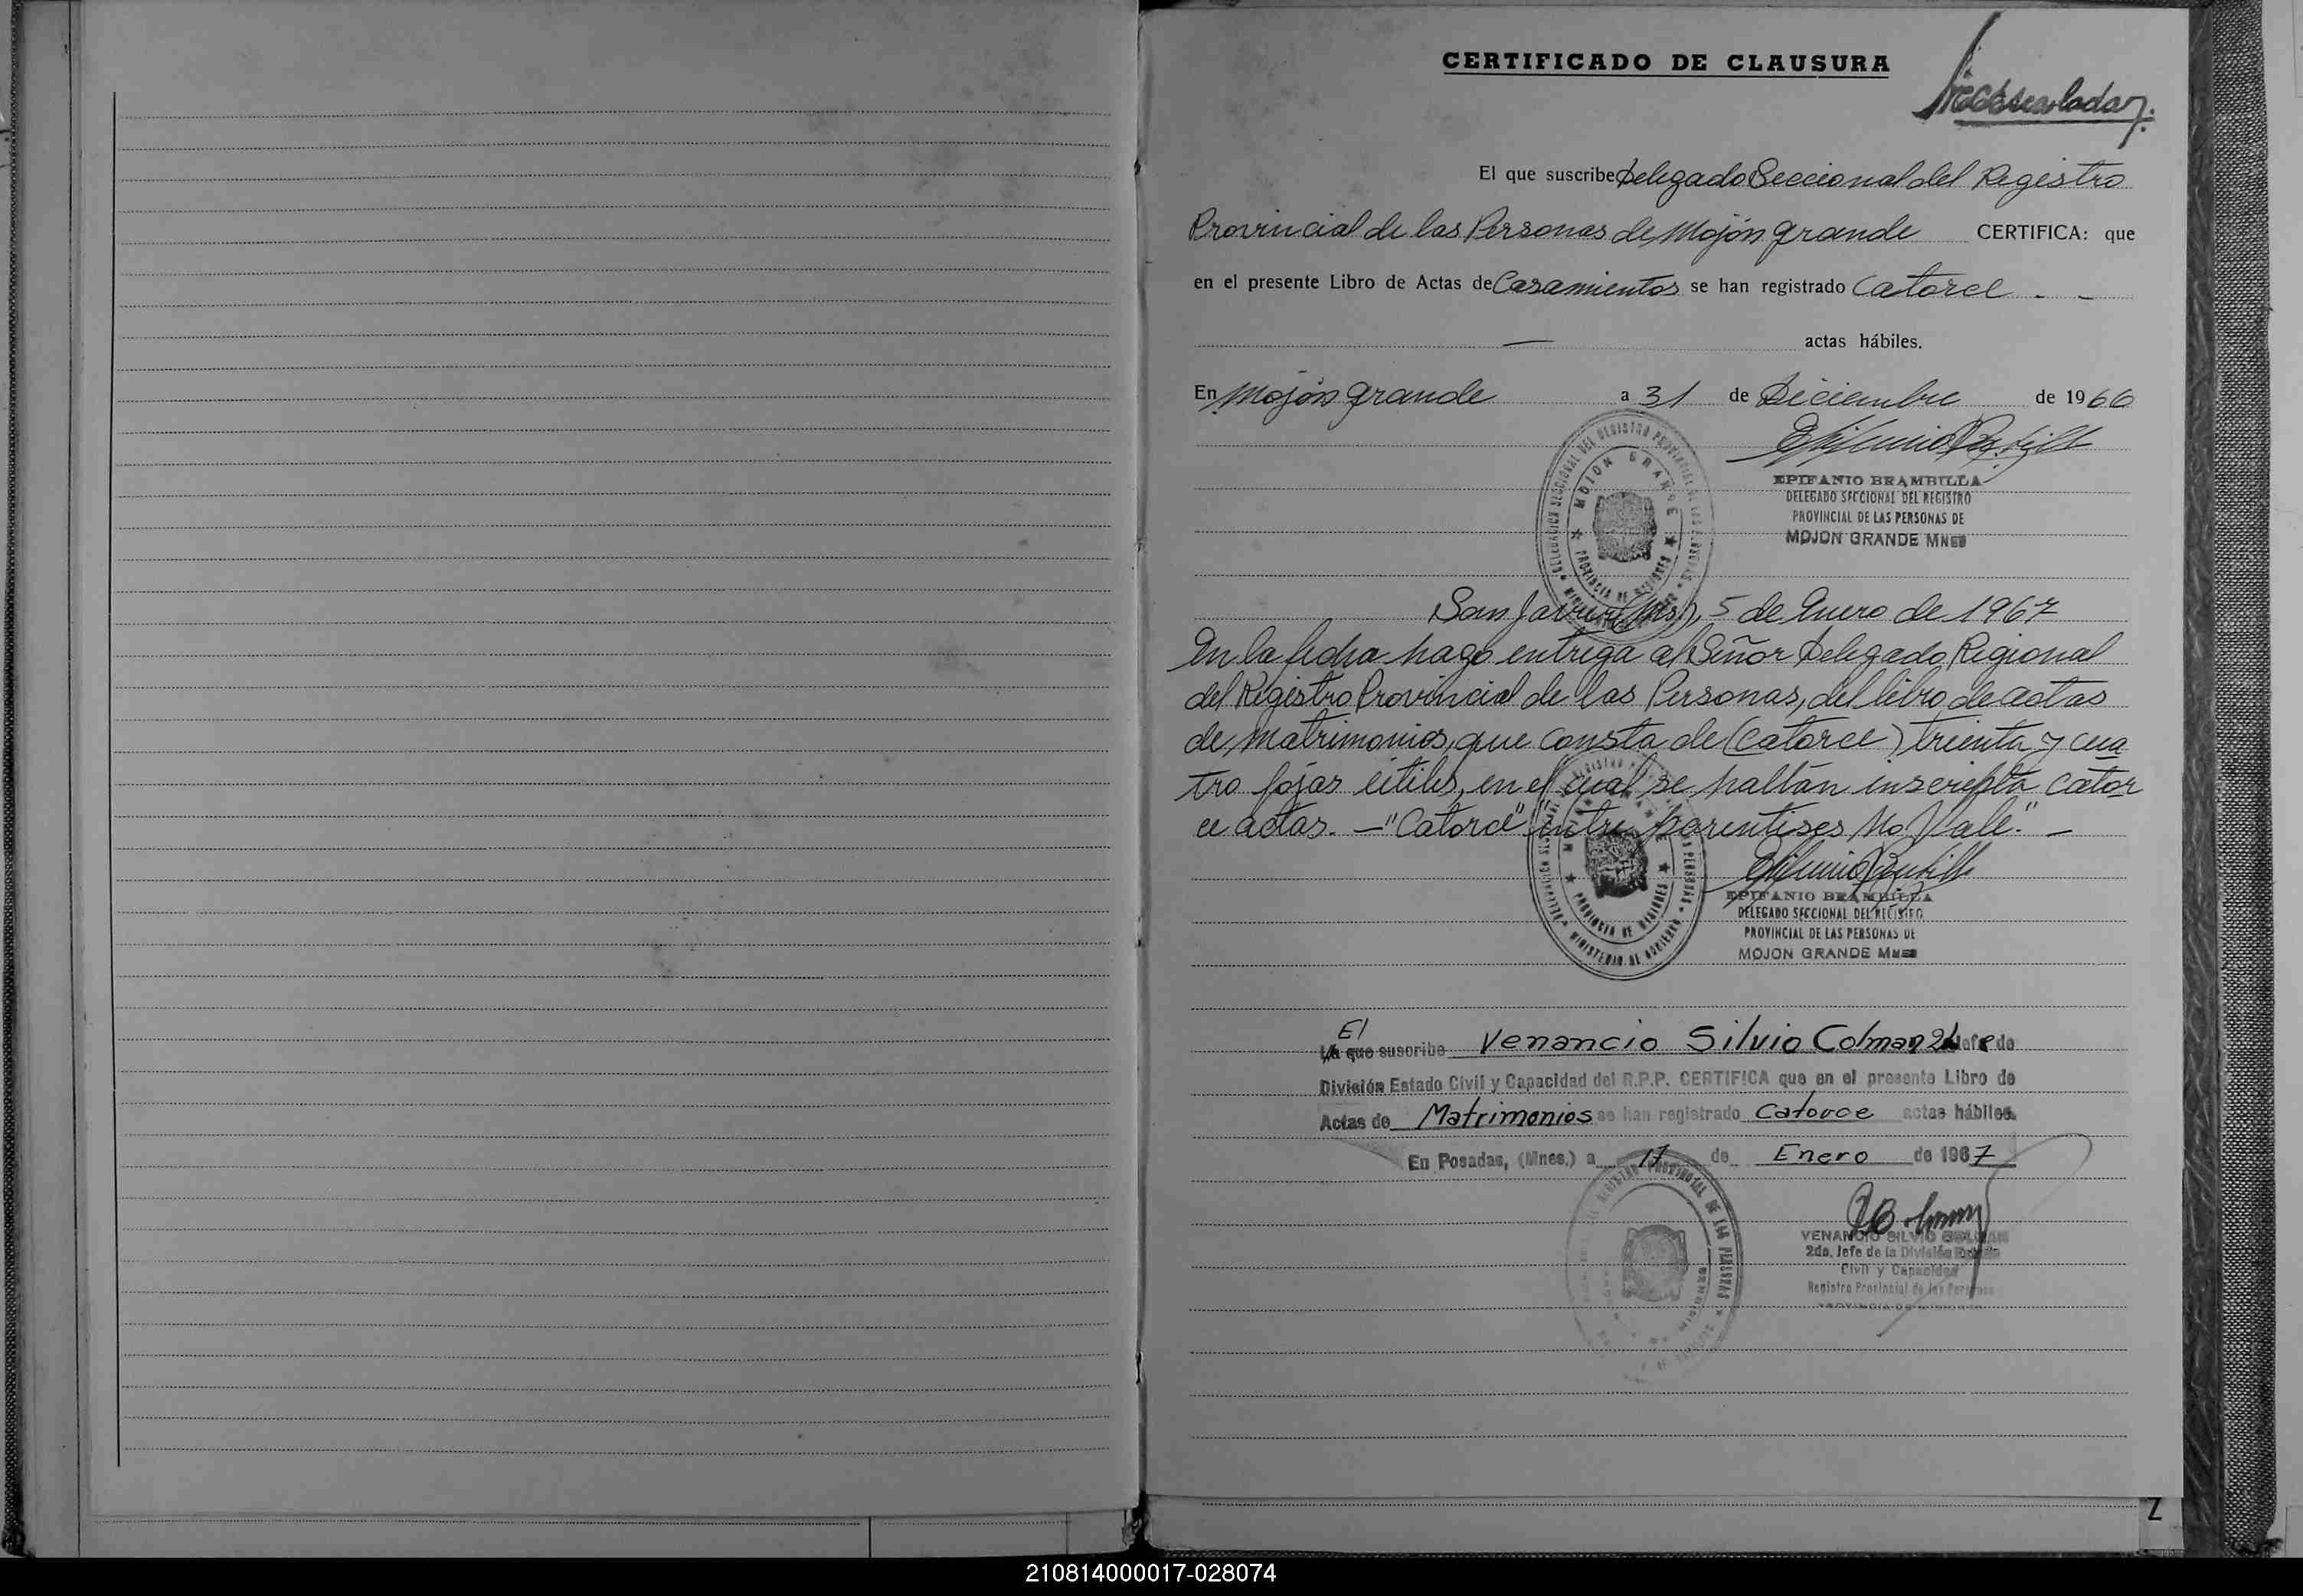 CERTIFICADO DE CLAUSURA
El que suscribe Delegado Seccional del Registro
Provincial de las Personas de Mojón Grande CERTIFICA: que
en el presente Libro de Actas de Casamientos se han registrado Catorce . -
— actas hábiles.
En Mojón Grande a 31 de Diciembre de 1966
EPIFANIO BRAMBILLA
DELEGADO SECCIONAL DEL REGISTRO
PROVINCIAL DE LAS PERSONAS DE
MOJON GRANDE Mnes
DELEGACION SECCIONAL DEL REGISTRO PROVINCIAL DE LAS PERSONAS
MOJON GRANDE
PROVINCIA DE MISIONES
San Javier (Ms), 5 de Enero de 1967
En la fecha hago entrega al Señor Delegado Regional
del Registro Provincial de las Personas, del libro de actas
de Matrimonios, que consta de (catorce) treinta y cua
tro fojas útiles, en el cual se hallan inscripta cator
ce actas. - "Catorce" entre parentises No Vale." -
EPIFANIO BRAMBILLA
DELEGADO SECCIONAL DEL REGISTRO
PROVINCIAL DE LAS PERSONAS DE
MOJON GRANDE Mnes
PROVINCIA DE MISIONES
MINISTERIO DE GOBIERNO
El
La que suscribe Venancio Silvio Colman 2do Jefe de
División Estado Civil y Capacidad del R.P.P. CERTIFICA que en el presente Libro de
Actas de Matrimonios se han registrado Catorce actas hábiles.
En Posadas, (Mnes.) a 17 de Enero de 1967
REGISTRO PROVINCIAL DE LAS PERSONAS
VENANCIO SILVIO COLMAN
2do. Jefe de la División Estado
Civil y Capacidad
Registro Provincial de las Personas
PROVINCIA DE MISIONES
Z
210814000017-028074